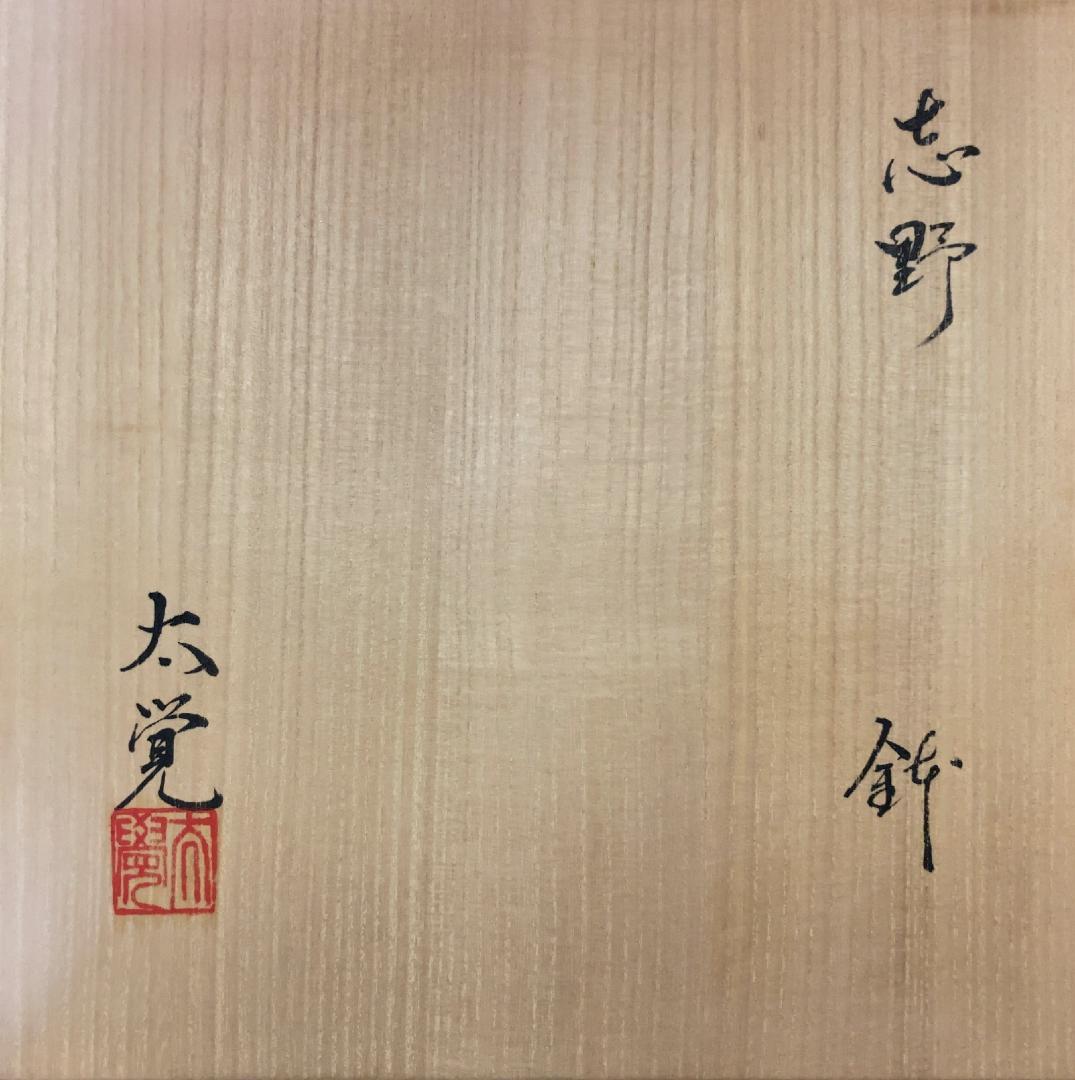 志野
鉢
太覚
太覺